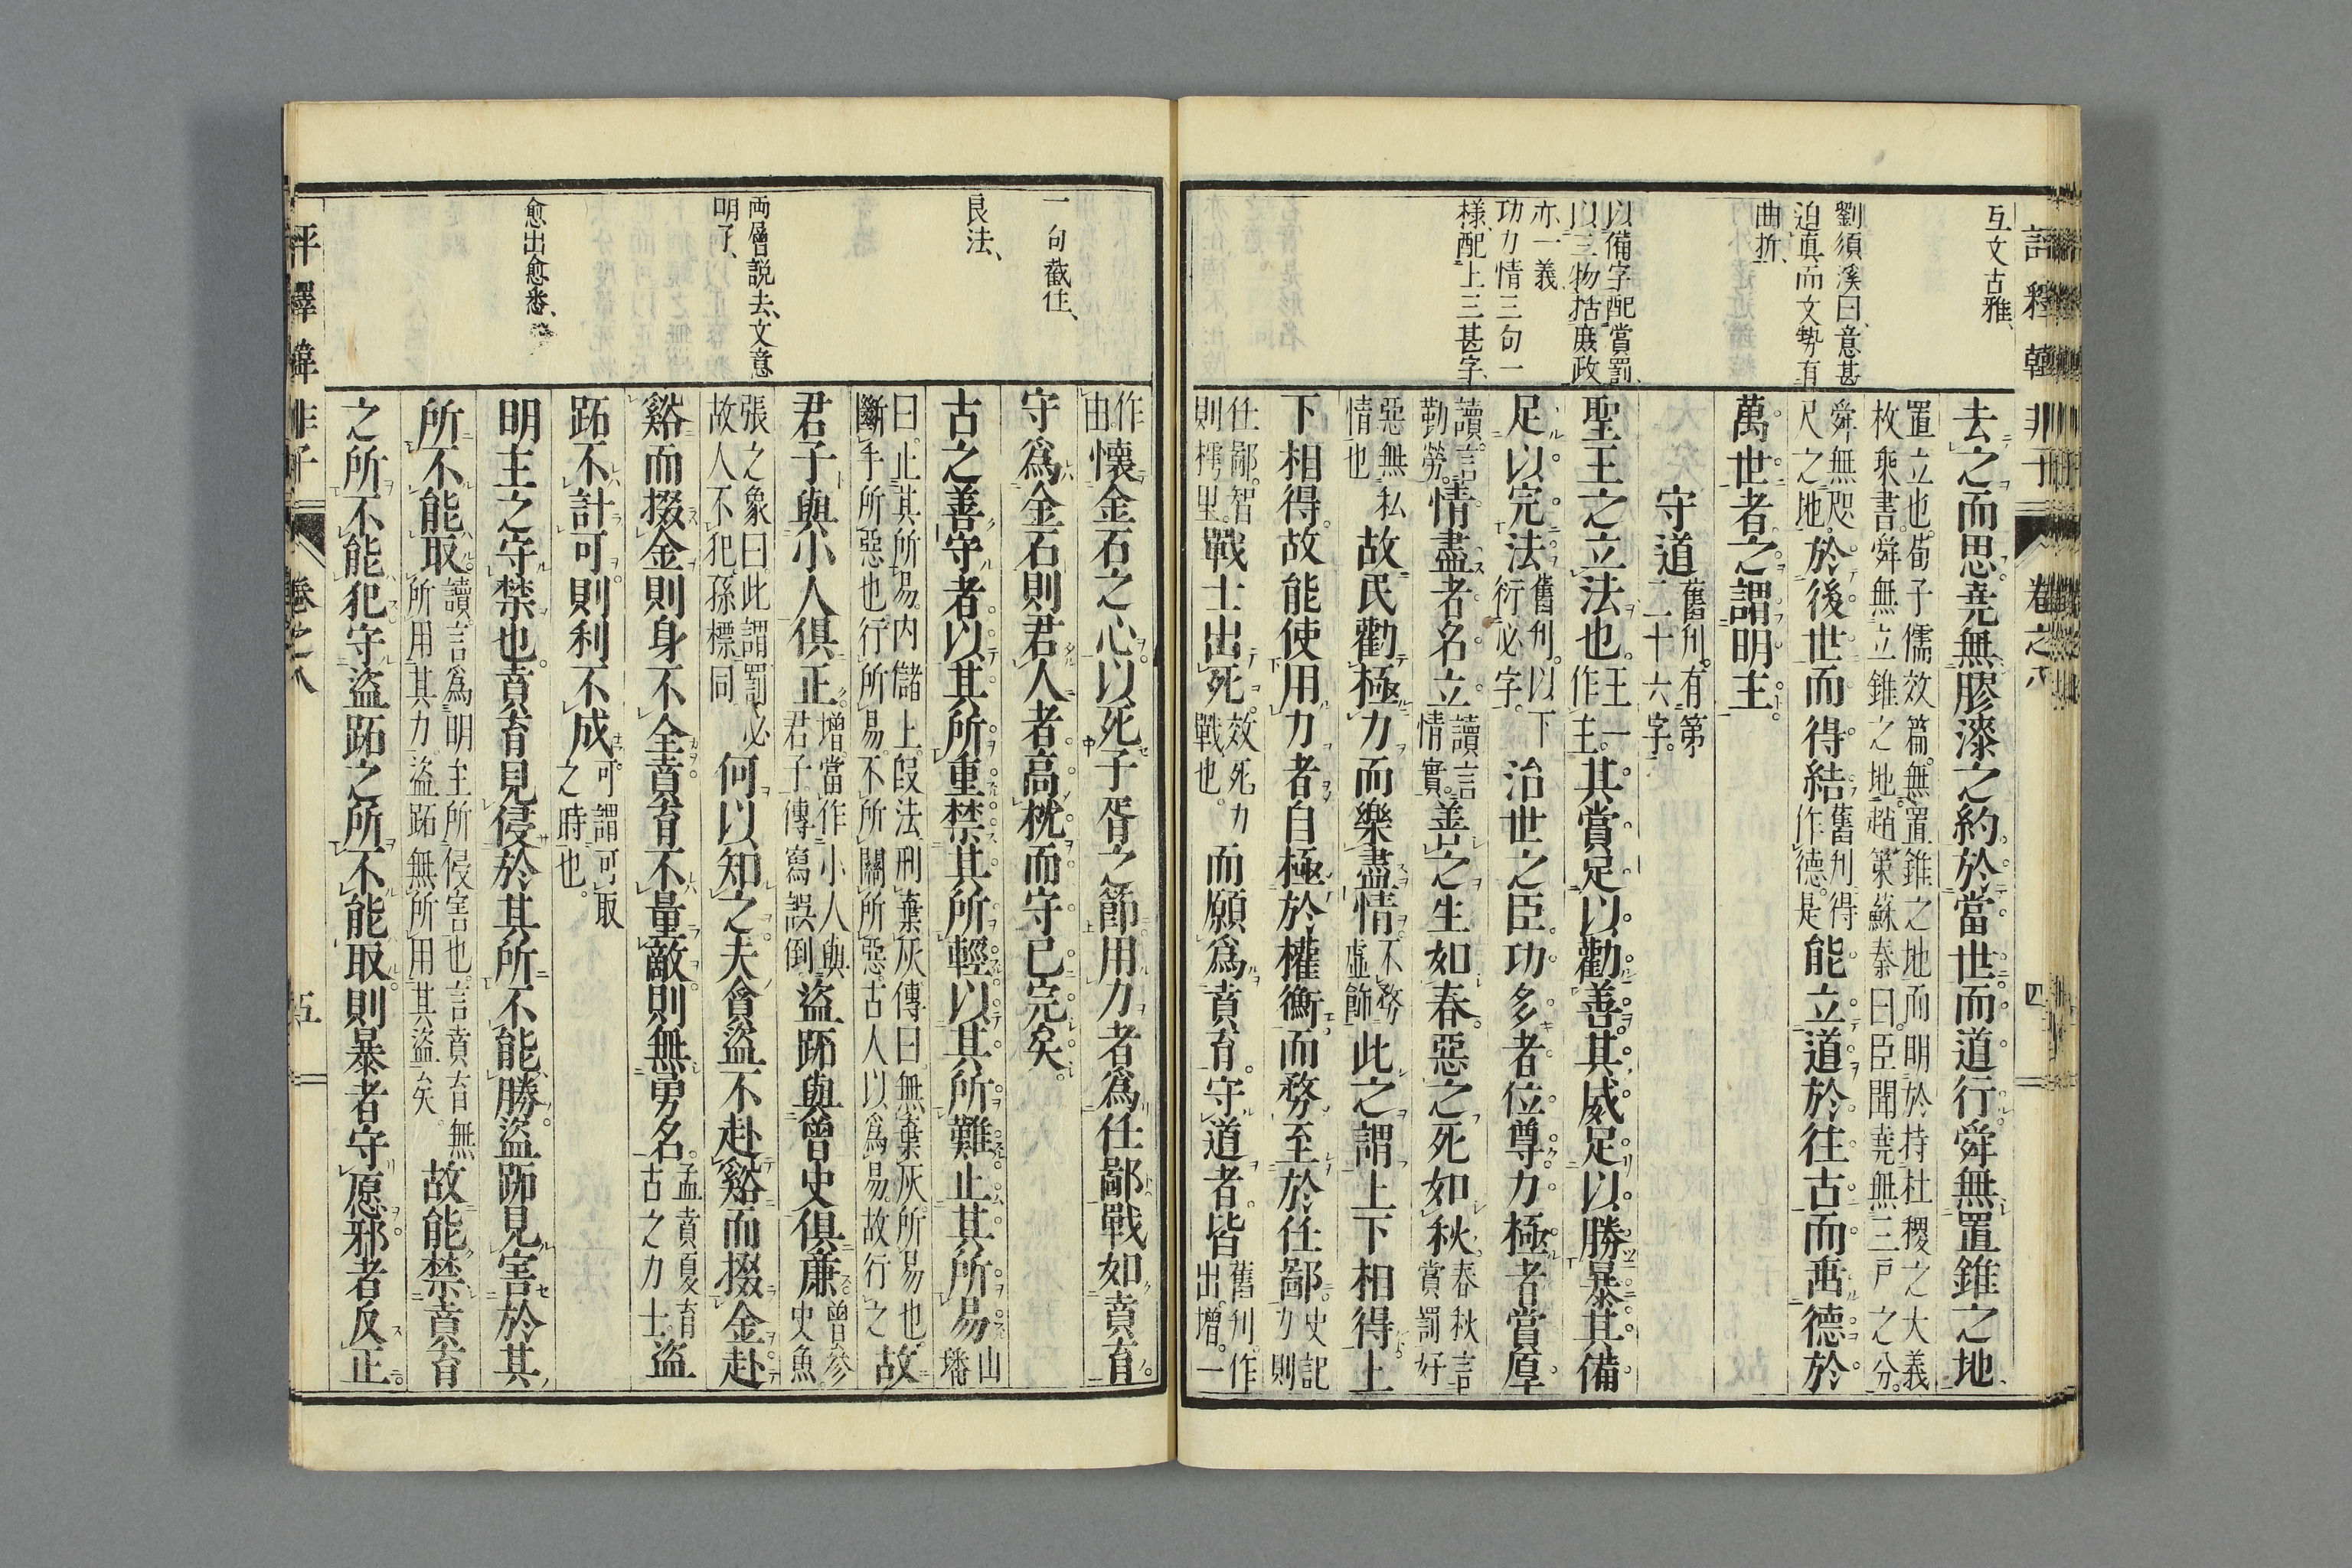 評釋韓非子 卷之八 四
互文古雅、
劉須溪曰、意甚
迫眞而文勢有
曲折、
以備字配賞罰、
以三物括庶政
亦一義、
功力情三句一
樣、配上三甚字、
去之而思堯無膠漆之約於當世而道行舜無置錐之地
置立也。荀子儒效篇。無置錐之地而明於持社稷之大義
枚乘書。舜無立錐之地。趙策蘇秦曰。臣聞堯無三戶之分。
舜無咫
尺之地。於後世而得結舊刋得
作德。是能立道於往古而垂德於
萬世者之謂明主。
守道舊刋。有第
二十六字。
聖王之立法也。王一
作主。其賞足以勸善其威足以勝暴其備
足以完法舊刋。以下
衍必字。治世之臣功多者位尊力極者賞厚
讀言
勤勞。情盡者名立讀言
情實。善之生如春。惡之死如秋。春秋言
賞罰好
惡無私
情也故民勸極力而樂盡情。不務
虛飾此之謂上下相得上
下相得。故能使用力者自極於權衡而務至於任鄙。史記
力則
任鄙。智
則樗里。戰士出死。效死力
戰也。而願爲賁育。守道者。皆舊刋。作
出。增。一
作
由。懷金石之心以死子胥之節用力者爲任鄙戰如賁育。
守爲金石則君人者高枕而守已完矣。
古之善守者以其所重禁其所輕以其所難止其所易山
璠
曰。止其所易。內儲上段法刑棄灰傳曰。無棄灰。所易也。
斷手所惡也。行所易。不所關所惡。古人以爲易。故行之故
君子與小人俱正增。當作小人與
君子。傳寫誤倒盜跖與曾史俱廉曾參
史魚。
張之象曰。此謂罰必
故人不犯。孫標同何以知之夫貪盜不赴谿而掇金赴
谿而掇金則身不全賁育不量敵則無勇名。孟賁夏育
古之力士。盜
跖不計可則利不成可謂可取
之時也。
明主之守禁也。賁育見侵於其所不能勝盜跖見害於其
所不能取。讀言爲明主所侵害也。言賁育無
所用其力。盜跖無所用其盜矣。故能禁賁育
之所不能犯守盜跖之所不能取則暴者守愿邪者反正
一句截住、
良法、
両層說去、文意
明了、
愈出愈悉、
卷之八 五